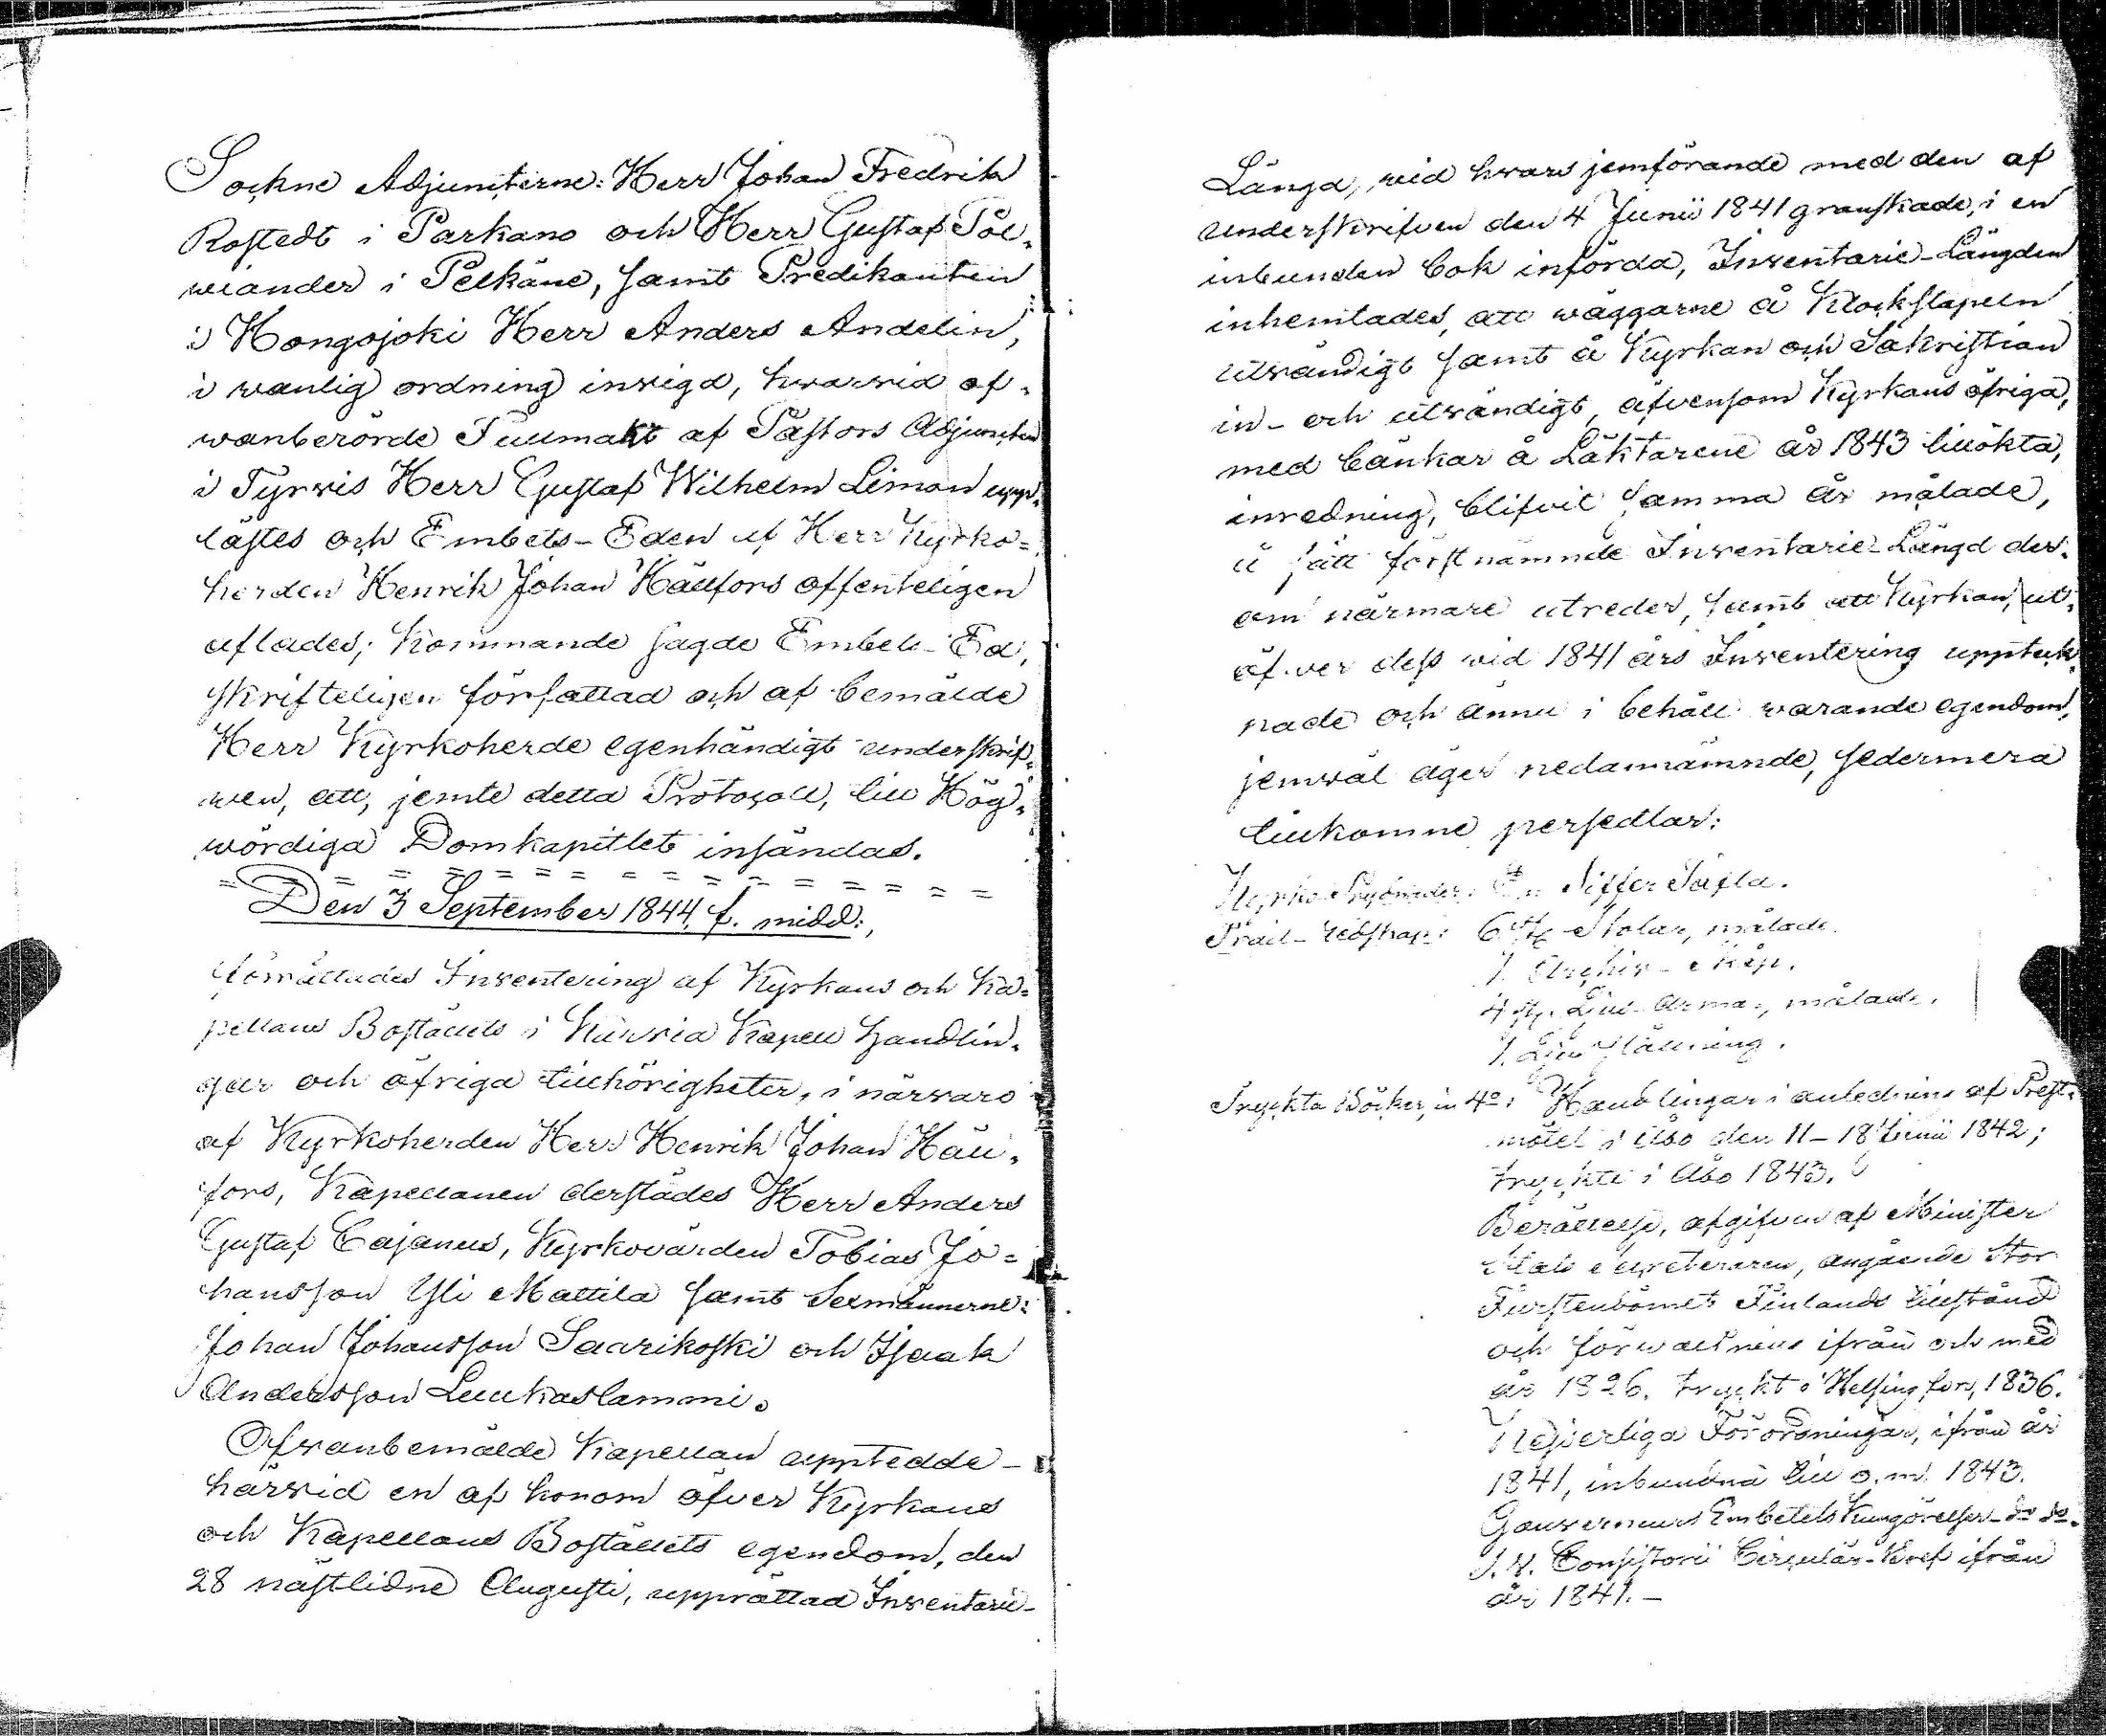 Sockne Adjuncterne: Herr Johan Fredrik
Rostedt i Parkano och Herr Gustaf Pol-
viander i Pelkäne, samt Predikanten
i Hongojoki Herr Anders Andelin,
i vanlig ordning invigd, hvarvid of-
wanberörde Fullmakt af Pastors Adjuncten
i Tyrvis Herr Gustaf Wilhelm Liman upp-
lästes och Embets-Eden af Herr Kyrko-
herden Henrik Johan Hällfors offenteligen
aflades; Kommande sagde Embets-Ed,
skrifteligen författad och af bemälde
Herr Kyrkoherde egenhändigt underskrif-
wen, att, jemte detta Protocoll, till Hög-
wördiga Domkapitlet insändas.
Den 3 September 1844, f. midd:,
förrättades Inventering af Kyrkans och Ka-
pellans Boställets i Kurvia Kapell Handlin-
gar och öfriga tillhörigheter, i närvaro
af Kyrkoherden Herr Henrik Johan Häll-
fors, Kapellanen derstädes Herr Anders
Gustaf Cajanus, Kyrkovärden Tobias Jo-
hansson Yli Mattila samt Sexmännerne:
Johan Johansson Saarikoski och Isaak
Andersson Luukaslammi.
Ofvanbemälde Kapellan upptedde
härvid en af honom öfver Kyrkans
och Kapellans Boställets egendom, den
28 nästlidne Augusti, upprättad Inventarie-
Längd, vid hvars jemförande med den af
underskrifven den 4 Junii 1841 granskade, i en
inbunden bok införda, Inventarie-Längden
inhemtades, att wäggarne å Klockstapeln
utvändigt samt å Kyrkan och Sakristian
in- och utvändigt, äfvensom Kyrkans öfriga,
med bänkar å Läktarene år 1843 tillökta,
inredning, blifvit samma år målade,
å sätt först nämnde Inventarie-Längd der-
om närmare utreder, samt att Kyrkan, ut-
öfver dess vid 1841 års Inventering uppteck-
nade och ännu i behåll varande egendom,
jemväl äger nedannämnde, sedermera
tillkomne persedlar:
Kyrko-Prydnader: En Siffer Tafla.
Träd-redskap: 6 st. Stolar, målade.
1. Archiv-Skåp.
4 st. Ljus-Armar, målade.
1. Ljus Ställning.
Tryckta Böcker, in 4º: Handlingar i anledning af Prest-
mötet i Åbo den 11-18 Junii 1842;
tryckte i Åbo 1843.
Berättelse, afgifven af Minister
Stats Secreteraren, angående Stor
Furstendömet Finlands tillstånd
och förvaltning ifrån och med
år 1826, tryckt i Helsingfors, 1836.
Kejserliga Förordningar, ifrån år
1841, inbundna till o. m. 1843.
Gouverneurs Embetets Kungörelser dº dº.
V. Consistorii Circulär-Bref ifrån
år 1841.-